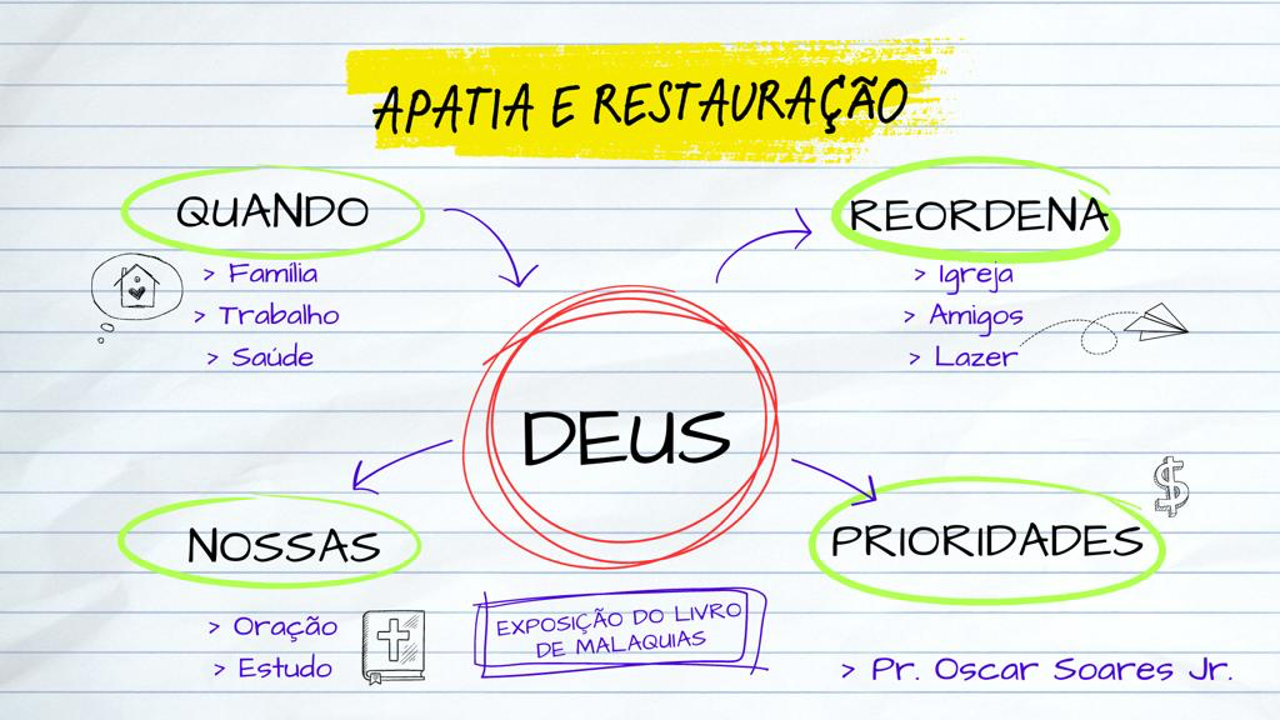 APATIA E RESTAURAÇÃO
QUANDO
> Família
> Trabalho
> Saúde
DEUS
REORDENA
> Igreja
> Amigos
> Lazer
NOSSAS
> Oração
> Estudo
PRIORIDADES
$
EXPOSIÇÃO DO LIVRO
DE MALAQUIAS
> Pr. Oscar Soares Jr.